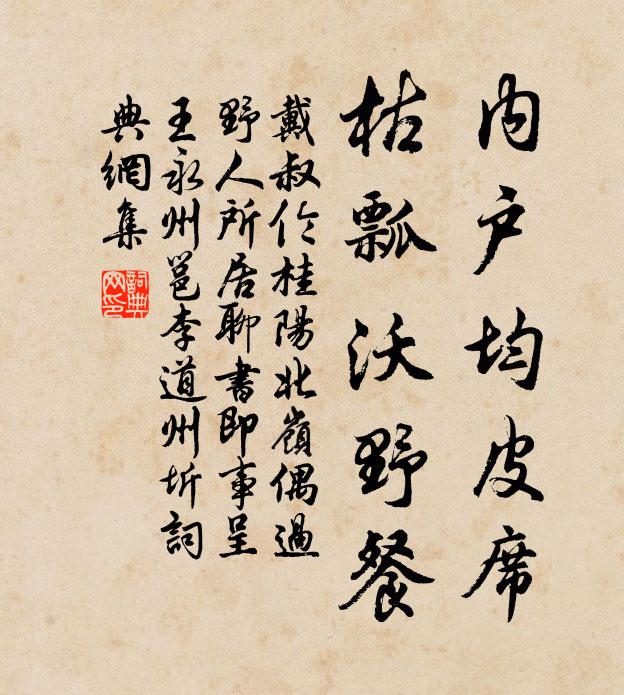 内户均皮席
枯瓢沃野餐
戴叔伦桂陽北嶺偶過
野人所居聊書即事呈
王永州邕李道州圻詞
典網集
詞典
网印